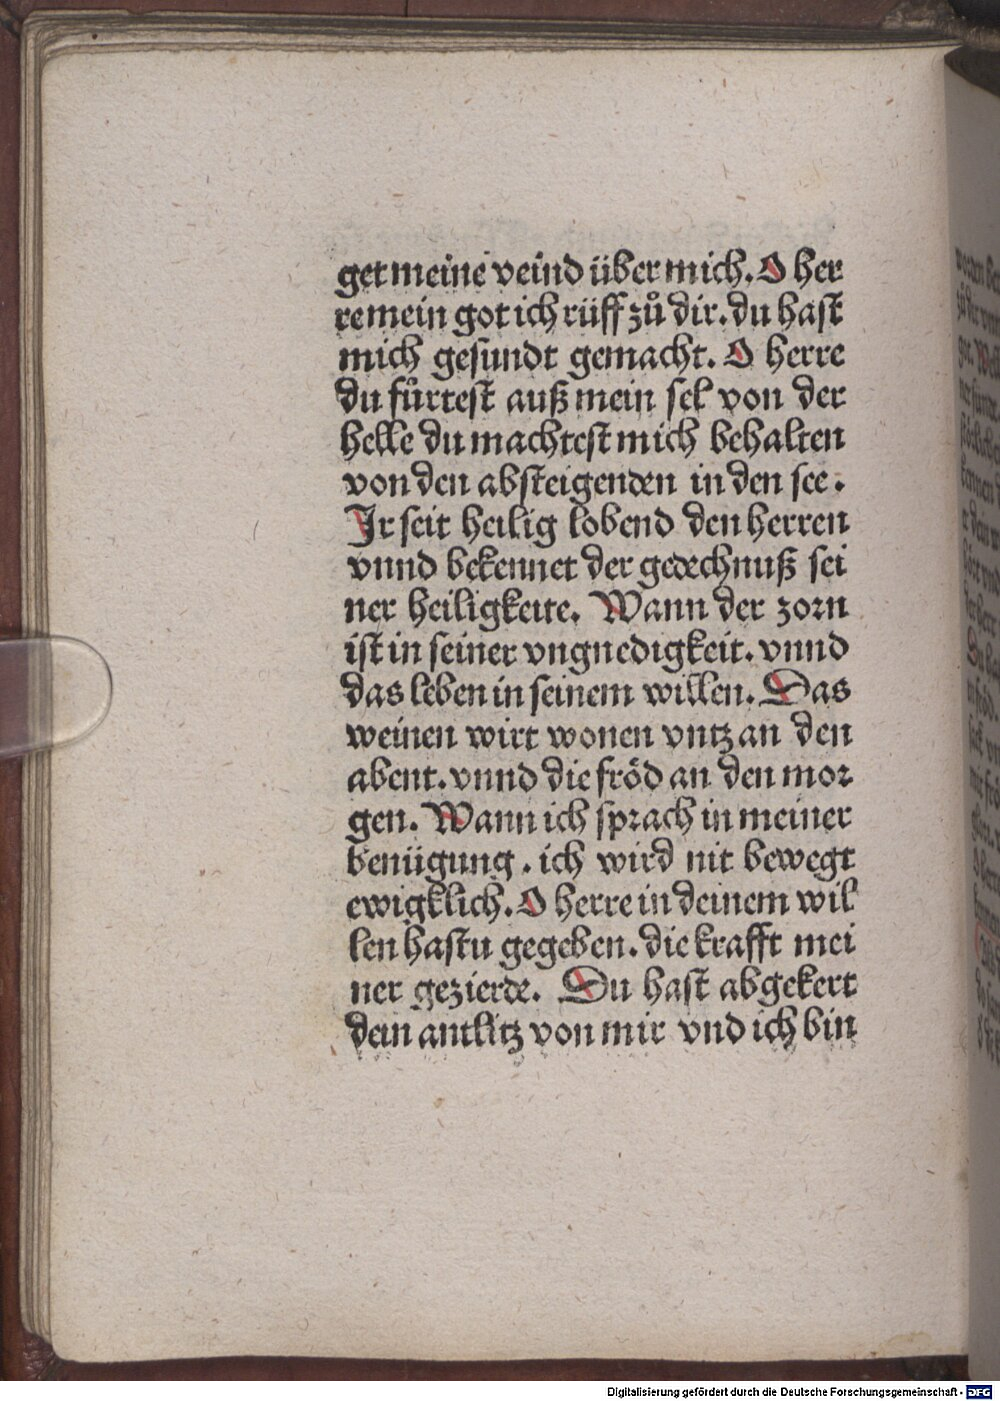 get meine veind über mich. O her
re mein got ich rüff zů dir. du hast
mich gesundt gemacht. O herre
du fůrtest auß mein sel von der
helle du machtest mich behalten
von den absteigenden in den see.
Ir seit heilig lobend den herren
vnnd bekennet der gedechnuß sei
ner heiligkeite. Wann der zorn
ist in seiner vngnedigkeit. vnnd
das leben in seinem willen. Das
weinen wirt wonen vntz an den
abent. vnnd die fröd an den mor
gen. Wann ich sprach in meiner
benügung. ich wird nit bewegt
ewigklich. O herre in deinem wil
len hastu gegeben. die krafft mei
ner gezierde. Du hast abgekert
dein antlitz von mir vnd ich bin
Digitalisierung gefördert durch die Deutsche Forschungsgemeinschaft - DFG